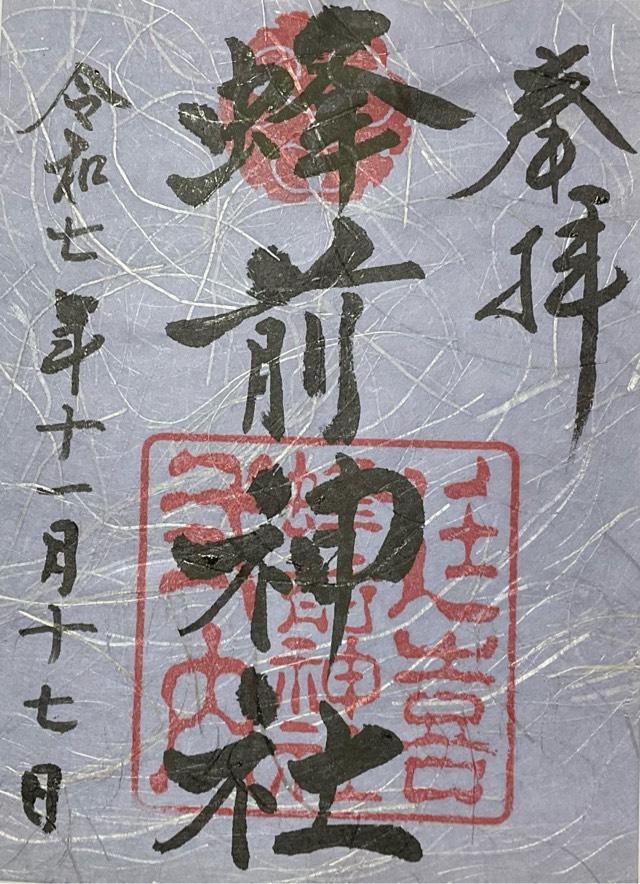 奉拝
蜂前神社
令和七年十一月十七日
延喜
蜂前神社
式内